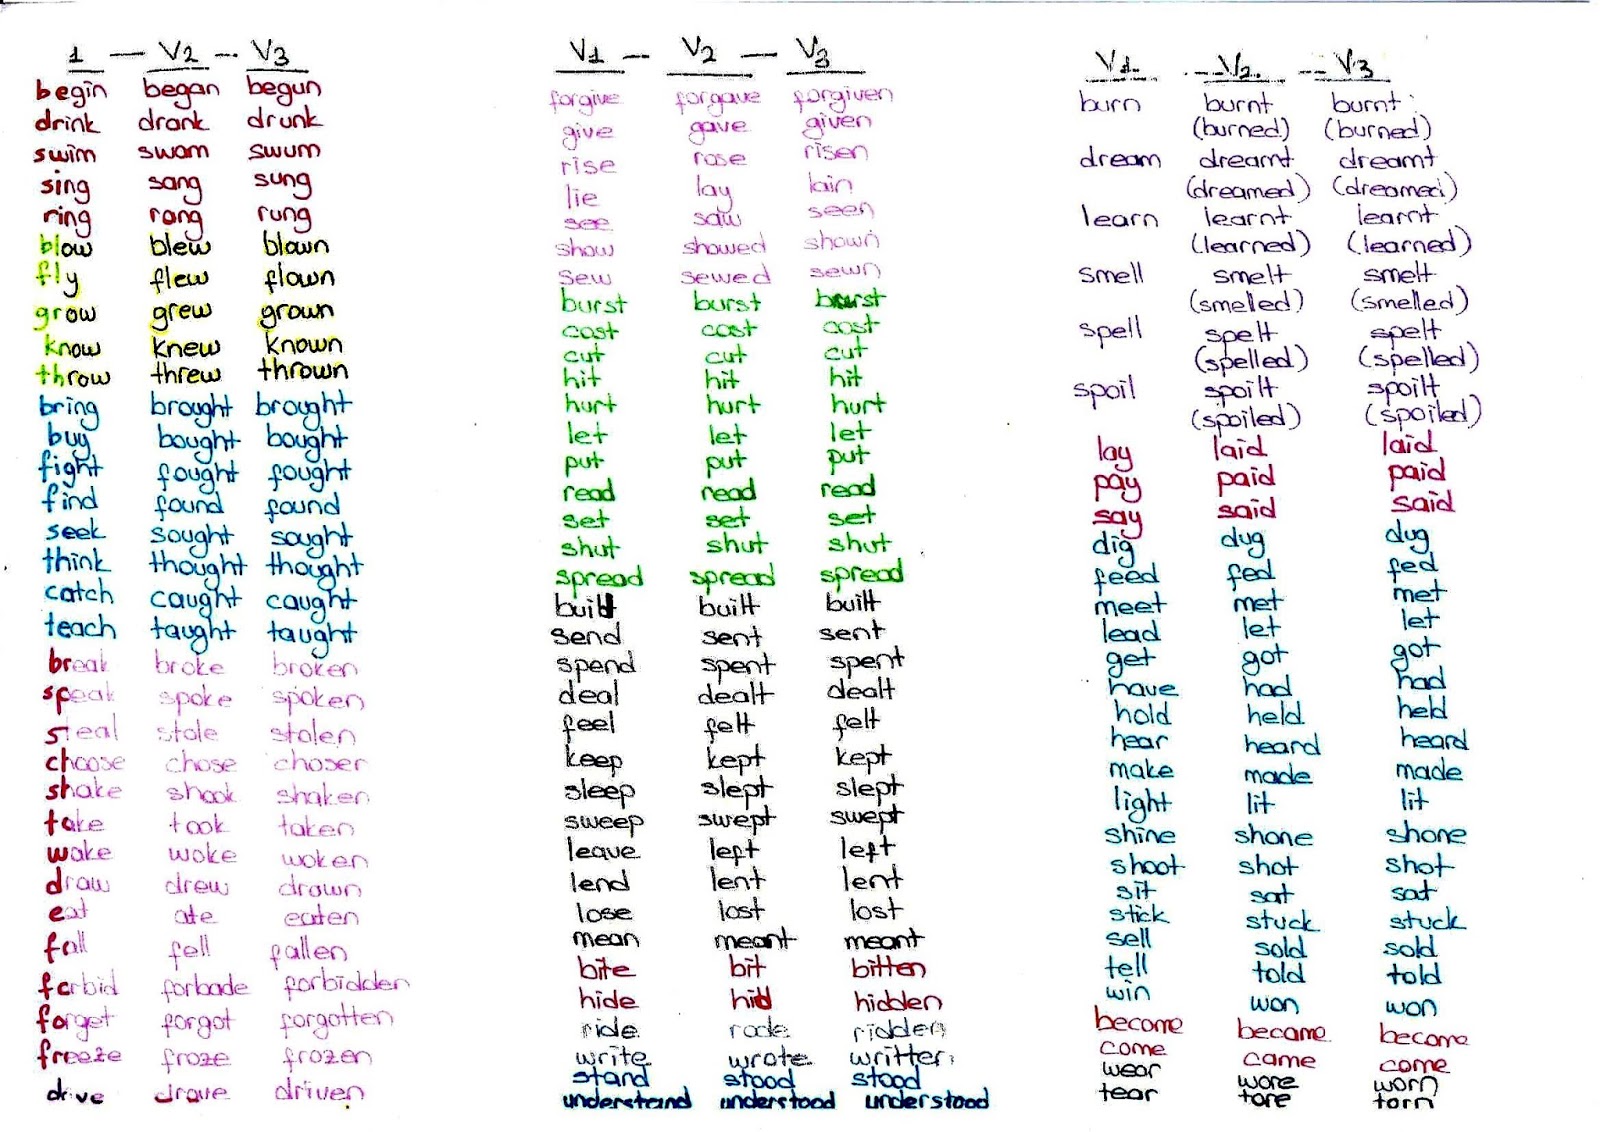 1 — V2 -- V3
begin began begun
drink drank drunk
swim swam swum
sing sang sung
ring rang rung
blow blew blown
fly flew flown
grow grew grown
know knew known
throw threw thrown
bring brought brought
buy bought bought
fight fought fought
find found found
seek sought sought
think thought thought
catch caught caught
teach taught taught
break broke broken
speak spoke spoken
steal stole stolen
choose chose chosen
shake shook shaken
take took taken
wake woke woken
draw drew drawn
eat ate eaten
fall fell fallen
forbid forbade forbidden
forget forgot forgotten
freeze froze frozen
drive drove driven
V1 — V2 — V3
forgive forgave forgiven
give gave given
rise rose risen
lie lay lain
see saw seen
show showed shown
sew sewed sewn
burst burst burst
cost cost cost
cut cut cut
hit hit hit
hurt hurt hurt
let let let
put put put
read read read
set set set
shut shut shut
spread spread spread
build built built
send sent sent
spend spent spent
deal dealt dealt
feel felt felt
keep kept kept
sleep slept slept
sweep swept swept
leave left left
lend lent lent
lose lost lost
mean meant meant
bite bit bitten
hide hid hidden
ride rode ridden
write wrote written
stand stood stood
understand understood understood
V1 -- V2 -- V3
burn burnt burnt
(burned) (burned)
dream dreamt dreamt
(dreamed) (dreamed)
learn learnt learnt
(learned) (learned)
smell smelt smelt
(smelled) (smelled)
spell spelt spelt
(spelled) (spelled)
spoil spoilt spoilt
(spoiled) (spoiled)
lay laid laid
pay paid paid
say said said
dig dug dug
feed fed fed
meet met met
lead let let
get got got
have had had
hold held held
hear heard heard
make made made
light lit lit
shine shone shone
shoot shot shot
sit sat sat
stick stuck stuck
sell sold sold
tell told told
win won won
become became become
come came come
wear wore worn
tear tore torn